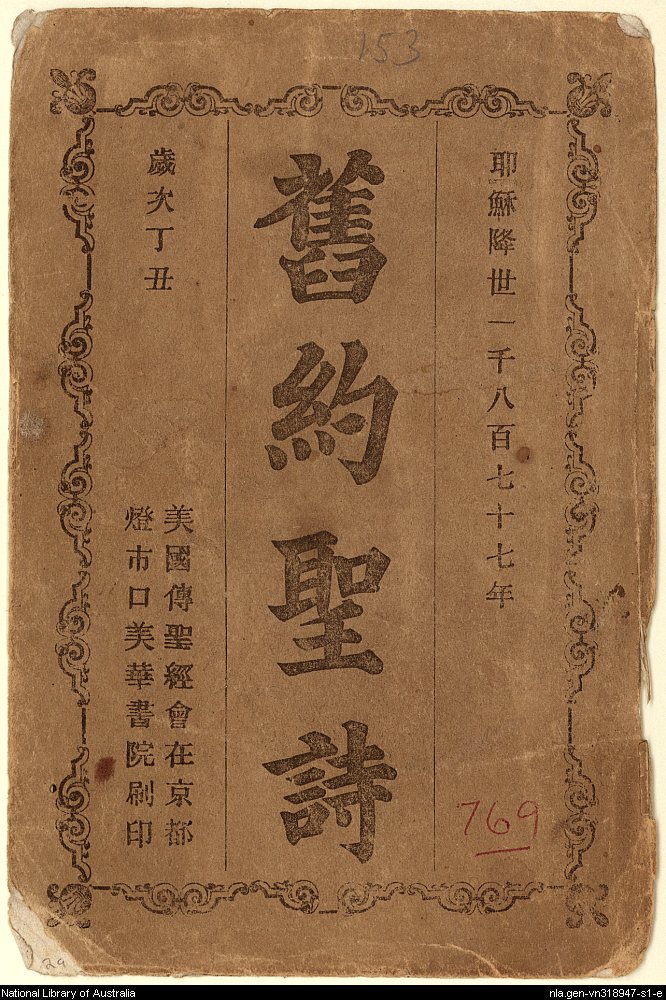 153
耶穌降世一千八百七十七年
舊約聖詩
歲次丁丑
美國傳聖經會在京都
燈市口美華書院刷印
769
29
National Library of Australia
nla.gen-vn318947-s1-e